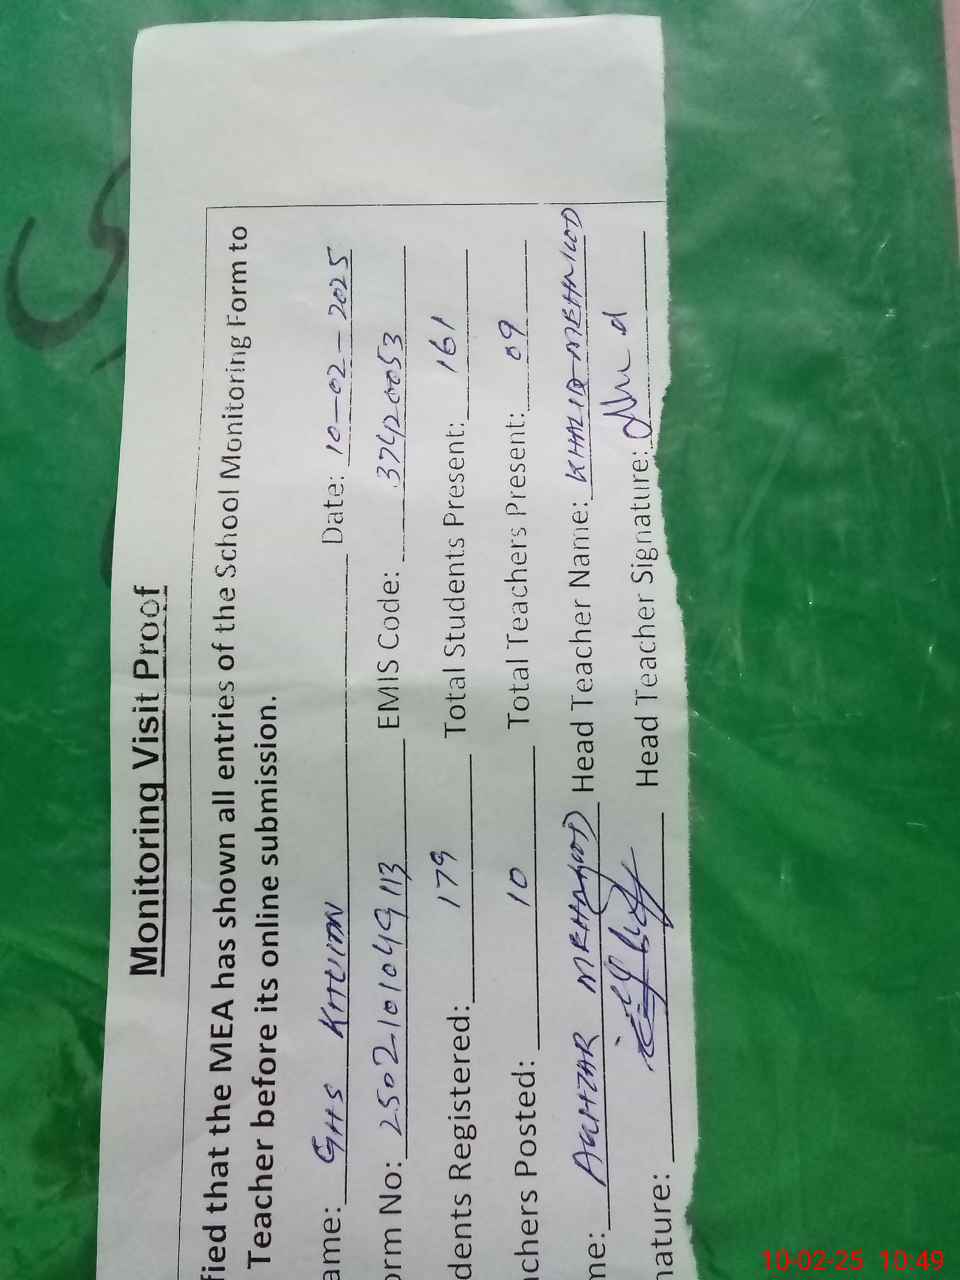 Monitoring Visit Proof
fied that the MEA has shown all entries of the School Monitoring Form to
Teacher before its online submission.
ame: GHS Date: 10-02-2025
orm No: 2502101049113 EMIS Code: 37420053
dents Registered: 179 Total Students Present: 161
chers Posted: 10 Total Teachers Present: 09
me: MEHMOOD Head Teacher Name: KHALID MEHMOOD
nature: Head Teacher Signature:
10-02-25 10:49